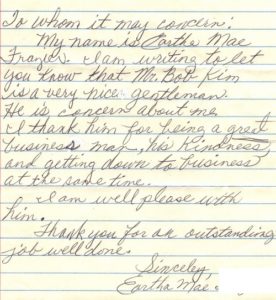 To whom it may concern:
My name is Eartha Mae
Frazier. I am writing to let
you know that Mr. Bob Kim
is a very nice gentleman.
He is concern about me
I thank him for being a great
business man, his kindness,
and getting down to business
at the same time.
I am well please with
him.
Thank you for an outstanding
job well done.
Sinceley,
Eartha Mae